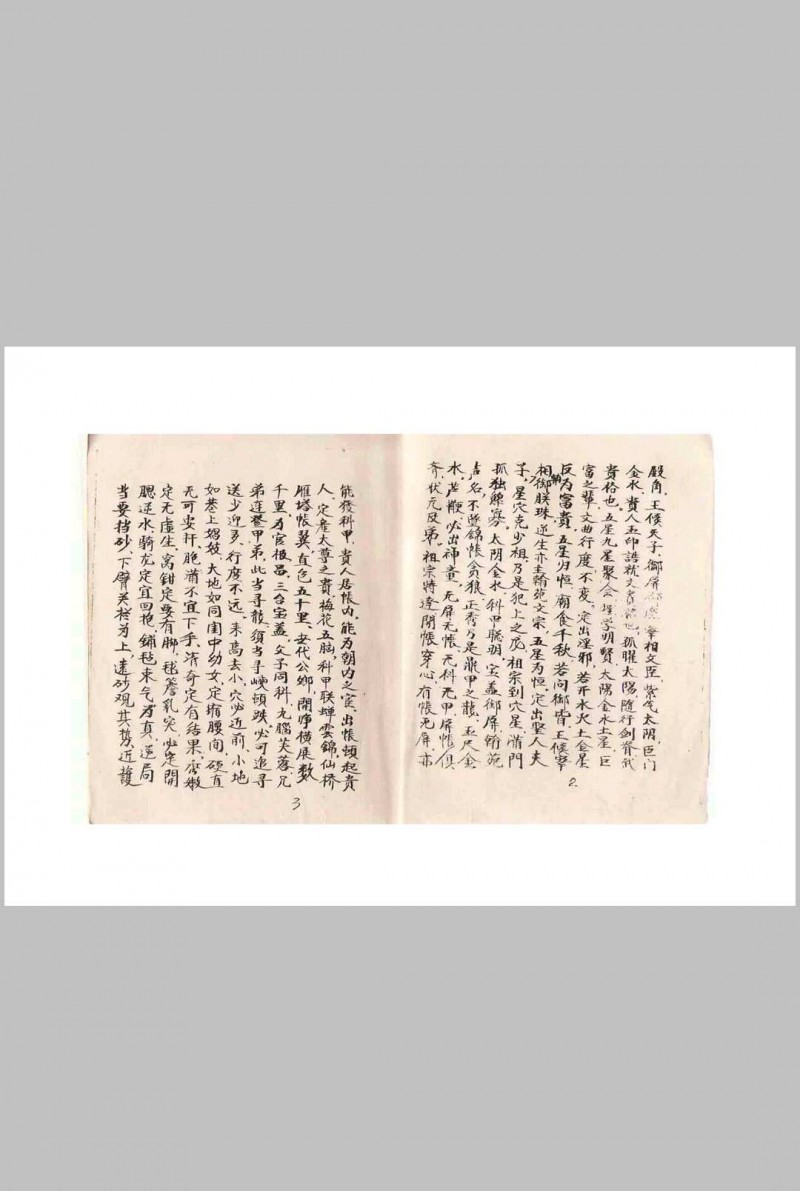 殿角，王候天子，御屏 宰相文臣，紫气太阴，巨门
金水，贵人玉印誥軸文貴 也，孤曜太陽，随行剑脊武
貴格也。五星九星聚会，理学明賢，太陽金水土星，巨
富之輩，文曲行度不变，定出淫邪，若开水火土金星
反为富貴，五星归恒，廟食千秋，若问御 ，王候宰
相，御 朕珠，逆生亦主翰苑文宗，五星为恒，定出聖人夫
子，星穴克少祖，乃是犯上之 ，祖宗到穴星，滑門
孤独鳏寡，太阴金水，科甲聪明，宝盖御屏，翰苑
吉名，不 錦帳贪狼，正秀乃是鼎甲之龍，玉尺金
水，芦鞭，必出神童，无屏无帐，无科无甲，屏帐俱
齐，状元及第，祖宗特達，開帐穿心，有帐无屏，亦
2
能發科甲，貴人居帐内，能为朝内之宦，出帐頓起貴
人，定產太尊之貴，梅花五脑，科甲联蝉，雲錦，仙桥
雁塔帐翼，直包五十里，世代公卿，開 横展数
千里，为官极品，三台宝盖，父子同科，九腦芙蓉，兄
弟连登甲弟，此当寻龍，须当寻 頓跌，必可追寻
送少迎多，行度不远，来高去小，穴必近前，小地
如巷上娼妓，大地如同闺中幼女，定有腰间，硬直
无可安扦，脆 不宜下手，清奇定有结果，秀嫩
定无虚生，窝鉗定要有脚，毬簷乳突，必定開
腮逆水，骑龙定宜回抱，鋪毡束气为真，逆局
当要挡砂，下臂关拦为上，遠砂观其势，近護
3